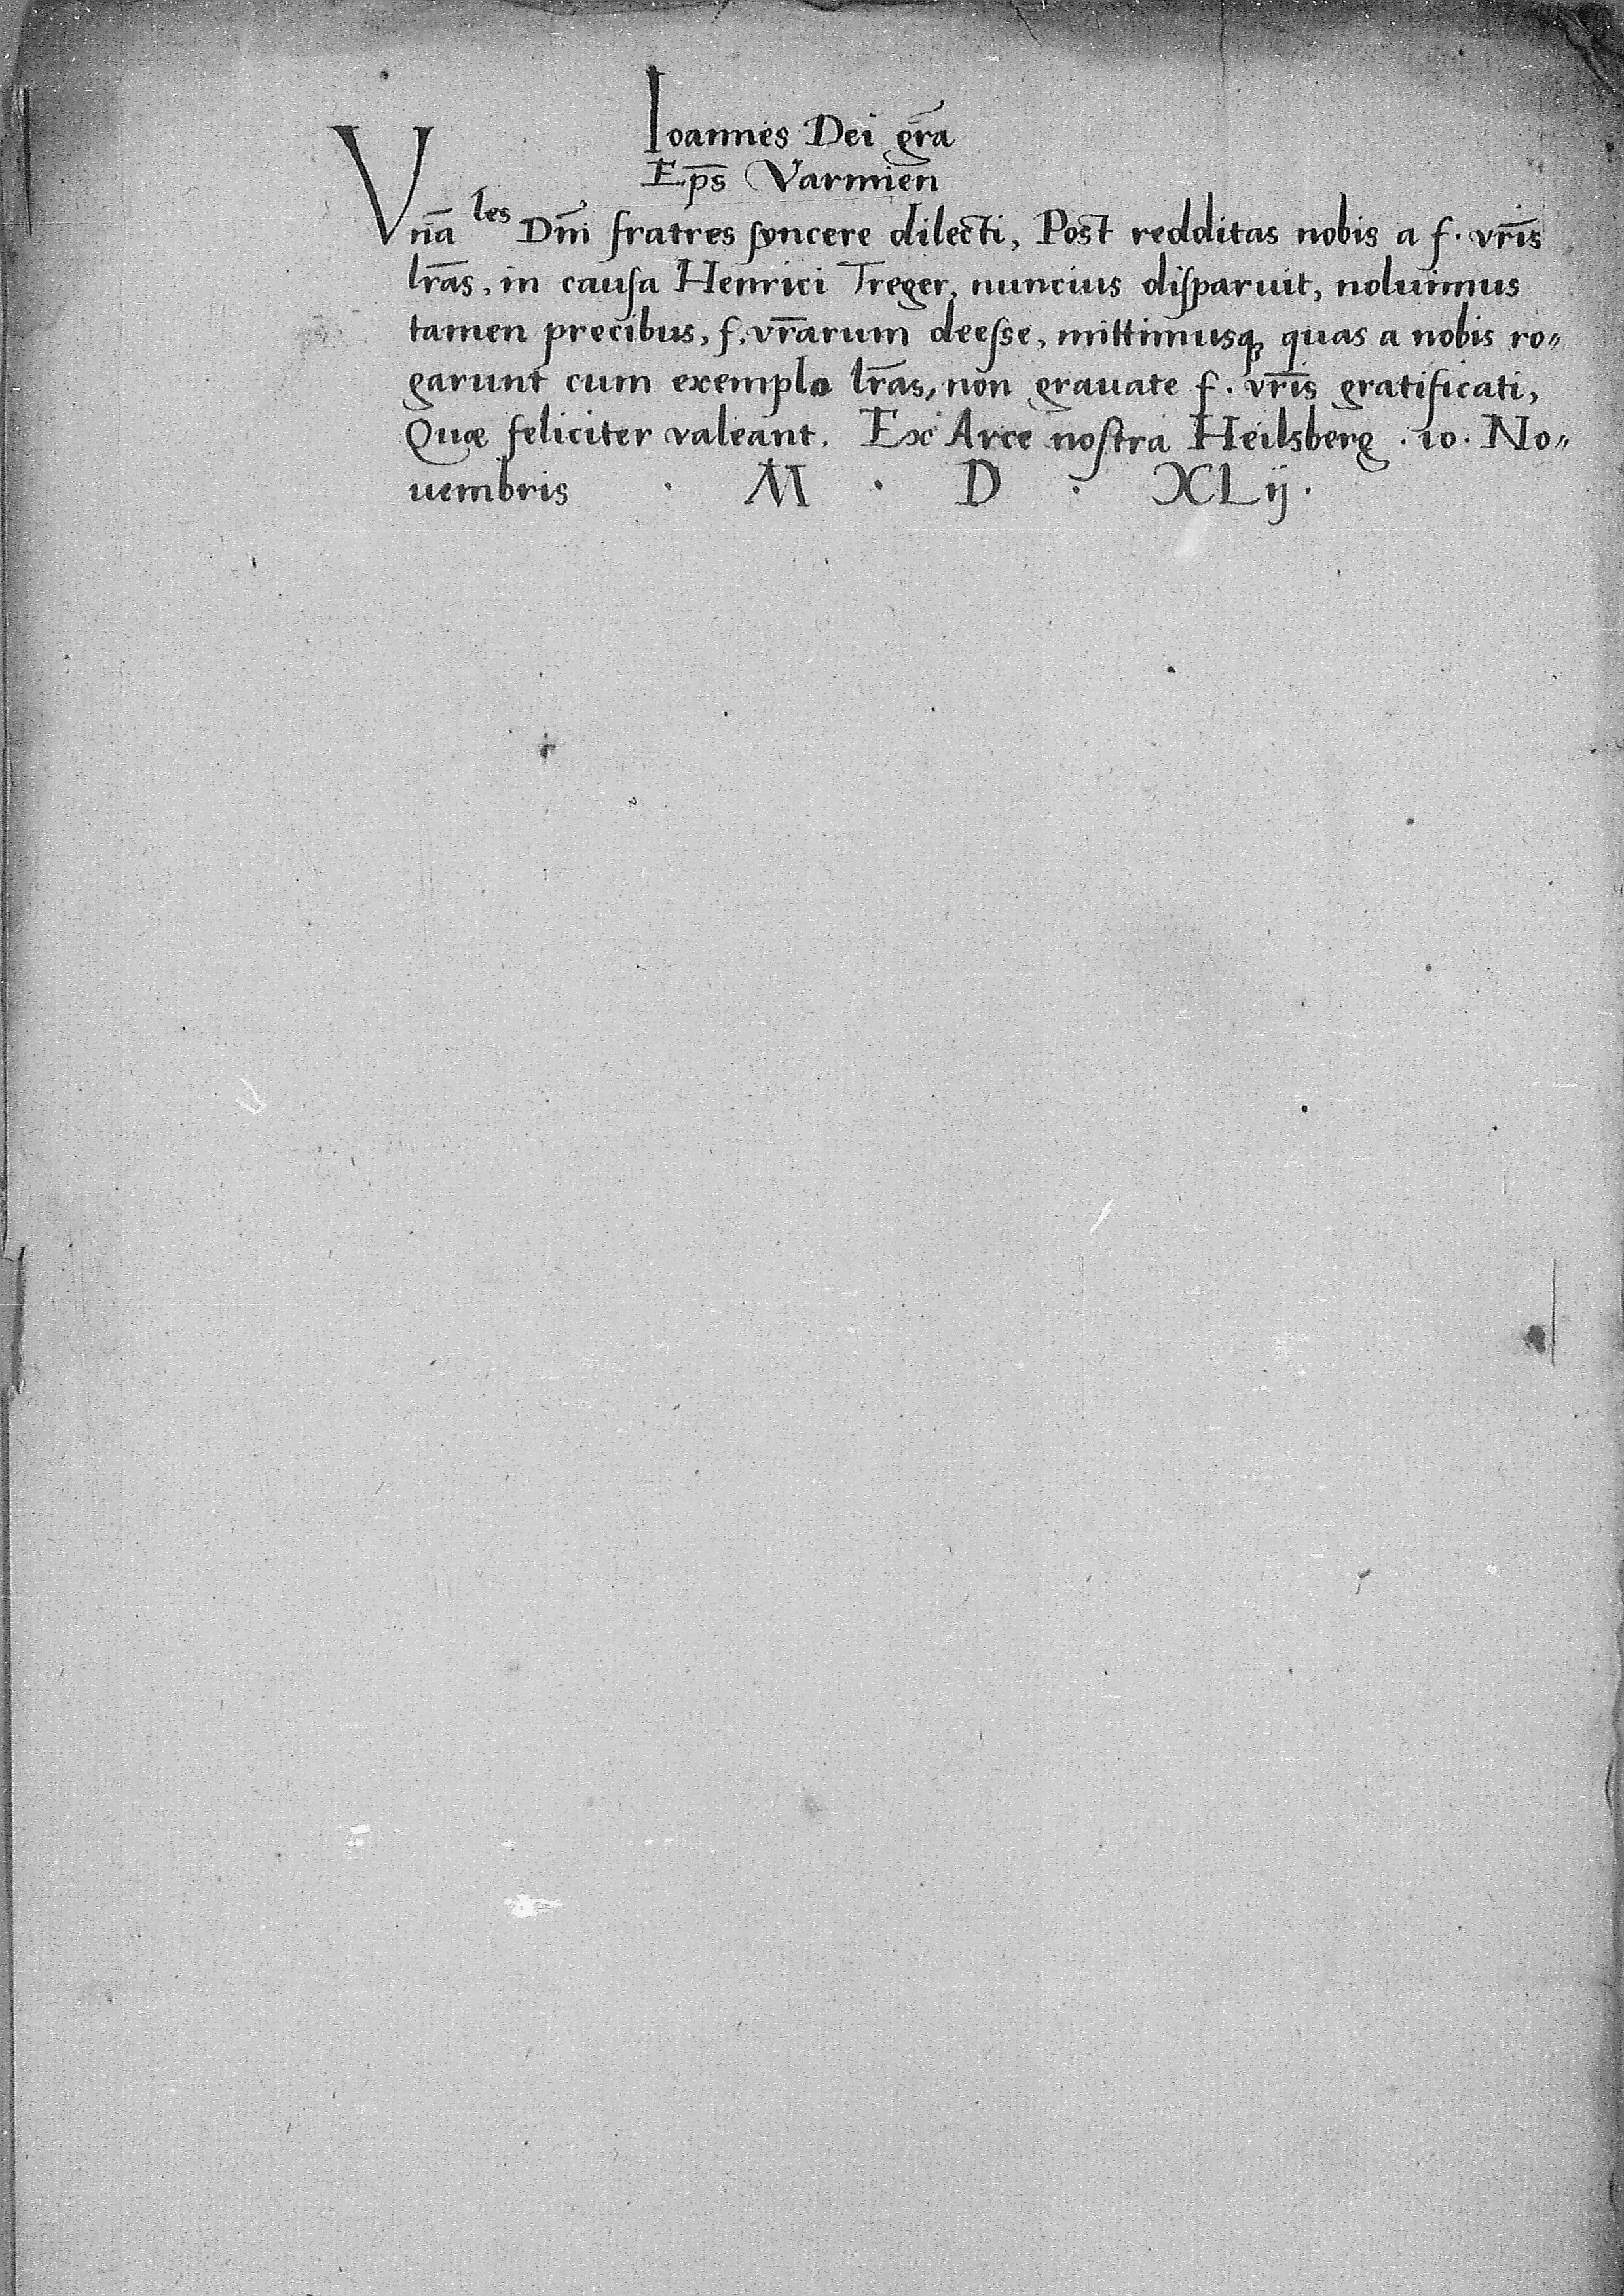 Ioannes Dei gr̄a
Ep̄s Varmien̄
Vn̄a les Dn̄i fratres syncere dilecti, Post redditas nobis a f. vr̄is
lr̄as, in causa Henrici Treger, nuncius disparuit, noluimus
tamen precibus, f. vr̄arum deesse, mittimusqꝫ quas a nobis ro„
garunt cum exemplo lr̄as, non grauate f. vr̄is gratificati,
Quæ feliciter valeant. Ex Arce nostra Heilsberg . 10. No„
uembris . M . D . XLij.